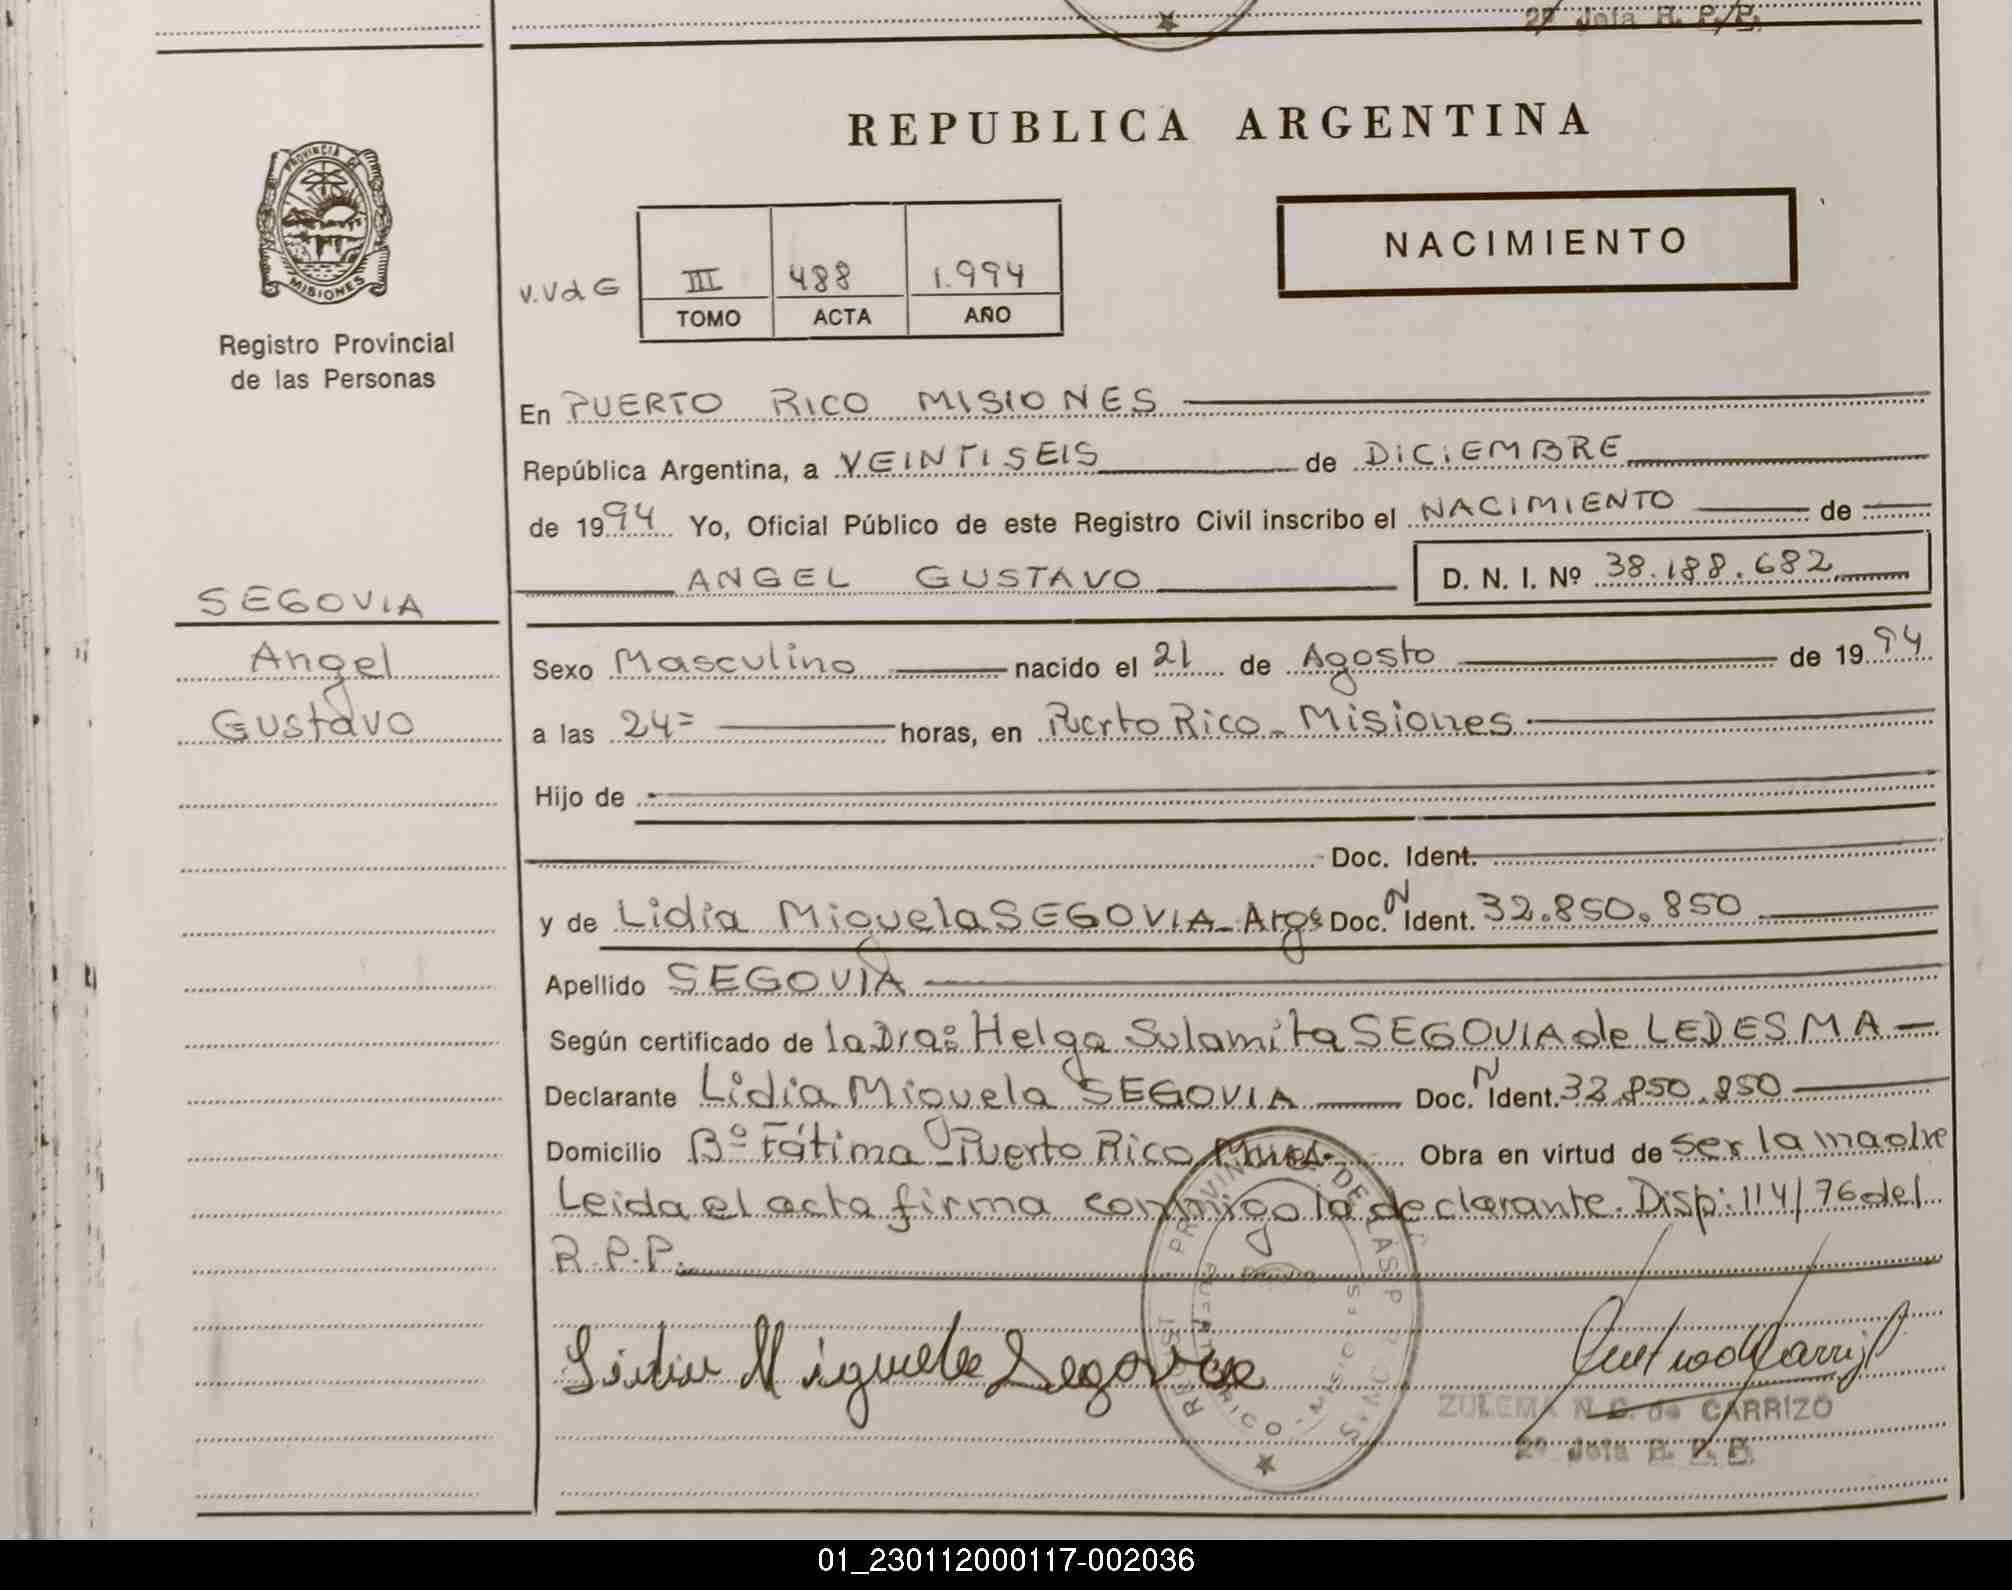 2º Jefa R. P. P.
REPUBLICA ARGENTINA
PROVINCIA DE
MISIONES
Registro Provincial
de las Personas
NACIMIENTO
V.VdG III 488 1.994
TOMO ACTA AÑO
En PUERTO RICO MISIONES
República Argentina, a VEINTISEIS de DICIEMBRE
de 1994 Yo, Oficial Público de este Registro Civil inscribo el NACIMIENTO de
ANGEL GUSTAVO D. N. I. Nº 38.188.682
SEGOVIA
Angel
Gustavo
Sexo Masculino nacido el 21 de Agosto de 1994
a las 24= horas, en Puerto Rico - Misiones
Hijo de
Doc. Ident.
y de Lidia Miguela SEGOVIA - Arg: Doc. N Ident. 32.850.850
Apellido SEGOVIA
Según certificado de la Dra: Helga Sulamita SEGOVIA de LEDESMA
Declarante Lidia Miguela SEGOVIA Doc. N Ident. 32.850.850
Domicilio Bº Fátima - Puerto Rico Mnes. Obra en virtud de ser la madre
Leida el acta firma conmigo la declarante. Disp: 114/76 del
R.P.P.
Lidia Miguela Segovia
ZULEMA N. C. de CARRIZO
2º Jefa R. P. P.
01_230112000117-002036